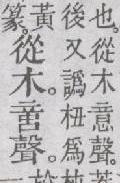 也。從木意聲。
後又譌杻爲
黃
篆。
從木。𠶷聲。